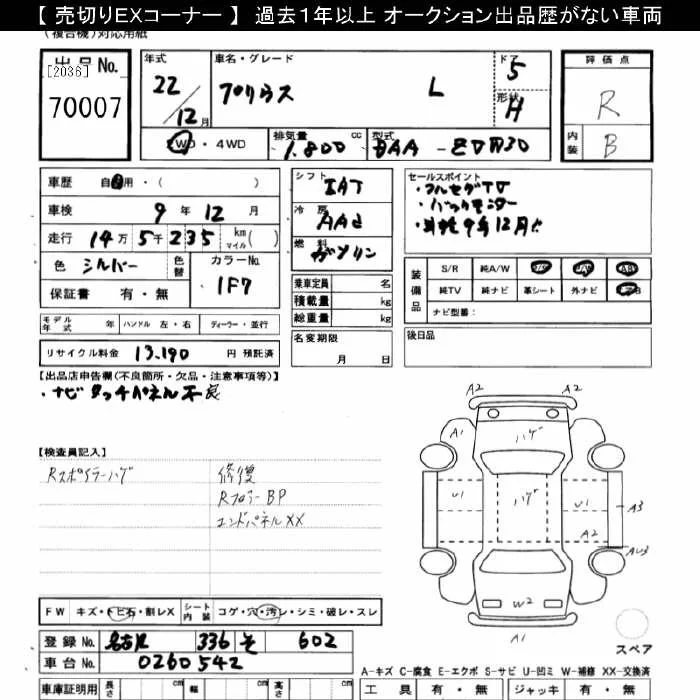 【 売切りEXコーナー 】 過去1年以上 オークション出品歴がない車両
(複合機)対応用紙
出品No.
[2036]
70007
年式 22 / 12月
車名・グレード
プリウス L
ドア 5
形状 H
評価点
R
内装 B
2WD・4WD
排気量 1.800 cc
型式 DAA - ZVW30
車歴 自家用・( )
車検 9年 12月
走行 14万 5千 235 km マイル ( )
色 シルバー 色替
カラーNo. 1F7
保証書 有・無
シフト IAT
冷房 AAC
燃料 ガソリン
乗車定員 名
積載量 kg
総重量 kg
セールスポイント
・フルセグTV
・バックモニター
・車検9年12月!!
装備品
S/R 純A/W P/S P/W AB
純TV 純ナビ 革シート 外ナビ
ナビ型番:
モデル年式 年 ハンドル 左・右 ディーラー・並行
リサイクル料金 13.190 円 預託済
名変期限 月 日
後日品
【出品店申告欄(不良箇所・欠品・注意事項等)】
・ナビ タッチパネル不良
【検査員記入】
Rスポイラーハゲ
修復
RフロアーBP
エンドパネルXX
A2 A2
A1 ハゲ
U1 ハゲ U1
A3
A2
AU3
W2
A1
スペア
FW キズ・トビ石・割レX シート内装 コゲ・穴・汚レ・シミ・破レ・スレ
登録No. 名古屋 336 そ 602
車台No. 0260542
A-キズ C-腐食 E-エクボ S-サビ U-凹ミ W-補修 XX-交換済
車庫証明用 長さ cm 幅 cm 高さ cm
工具 有・無 ジャッキ 有・無